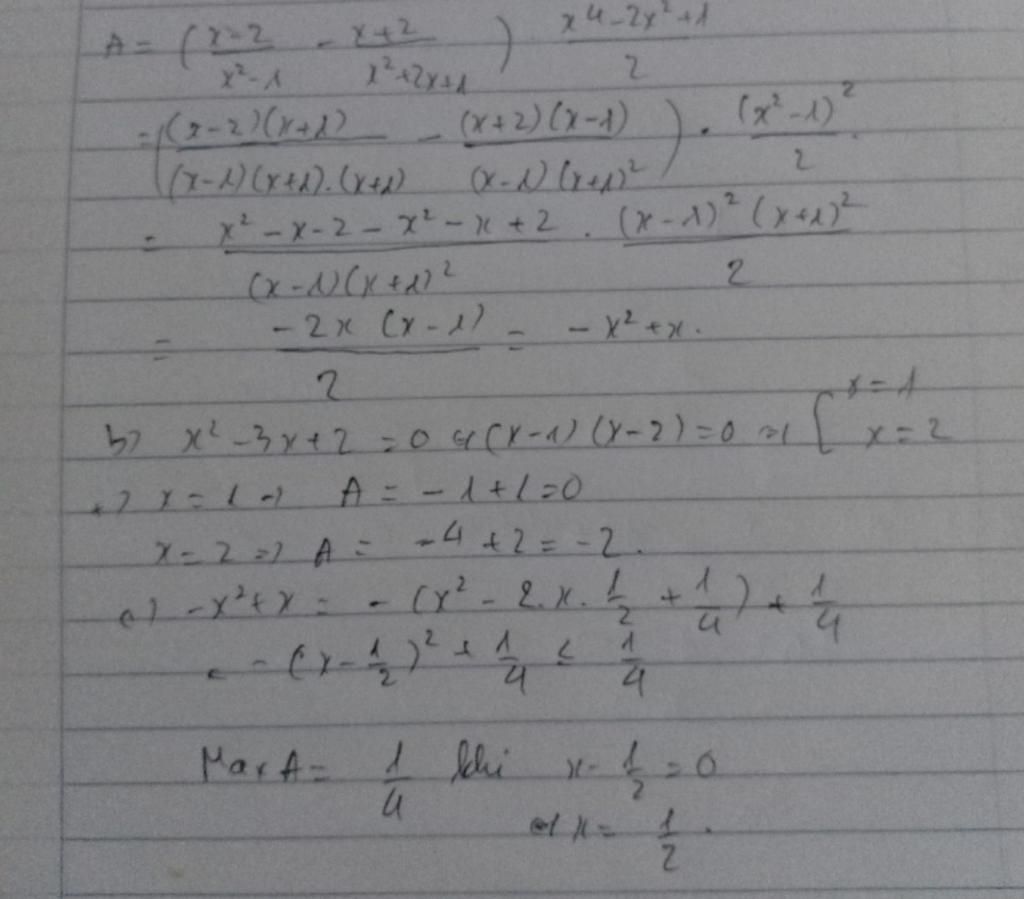 A = ( (x-2)/(x²-1) - (x+2)/(x²+2x+1) ) (x⁴-2x²+1)/2
= ( (x-2)(x+1)/((x-1)(x+1).(x+1)) - (x+2)(x-1)/((x-1)(x+1)²) ) . (x²-1)²/2
= (x²-x-2-x²-x+2)/((x-1)(x+1)²) . (x-1)²(x+1)²/2
= -2x(x-1)/2 = -x²+x.
b) x²-3x+2 = 0 ⇔ (x-1)(x-2)=0 ⇒ [ x=1 x=2
+) x=1 ⇒ A = -1+1=0
x=2 ⇒ A = -4+2=-2.
c) -x²+x = -(x²-2.x.1/2+1/4)+1/4
= -(x-1/2)²+1/4 ≤ 1/4
Max A = 1/4 khi x-1/2=0
⇔ x = 1/2.